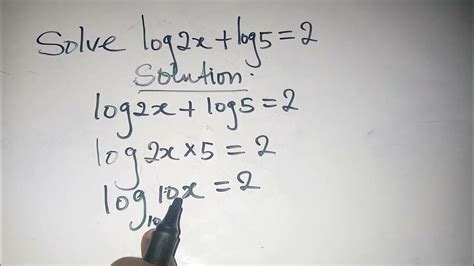 Solve log2x+log5=2
Solution.
log2x + log5=2
log2x×5 = 2
log₁₀10x = 2